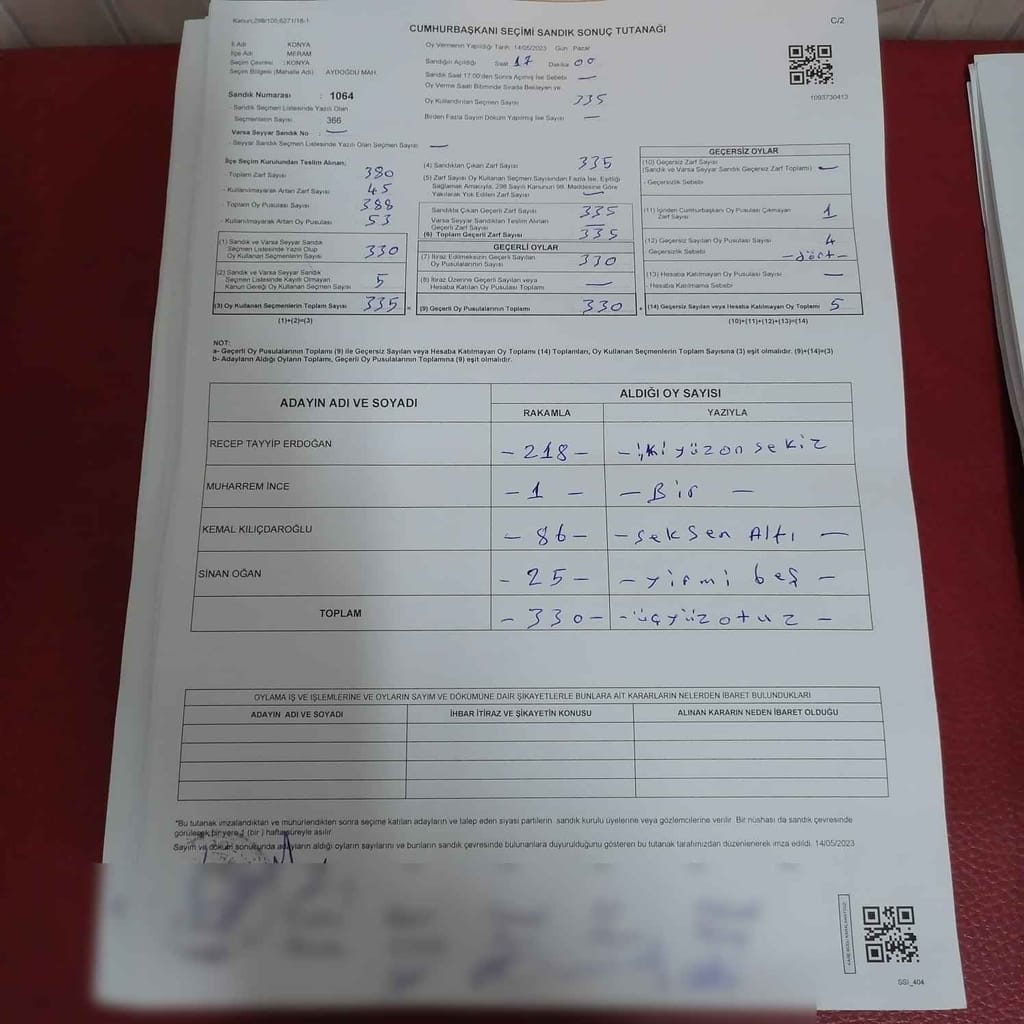 Kanun:298/105;6271/18-1
C/2
CUMHURBAŞKANI SEÇİMİ SANDIK SONUÇ TUTANAĞI
İl Adı KONYA
İlçe Adı MERAM
Seçim Çevresi : KONYA
Seçim Bölgesi (Mahalle Adı) AYDOĞDU MAH.
Oy Vermenin Yapıldığı Tarih 14/05/2023 Gün Pazar
Sandığın Açıldığı Saat 17 Dakika 00
Sandık Saat 17:00'den Sonra Açılmış İse Sebebi —
Oy Verme Saati Bitiminde Sırada Bekleyen ve
Oy Kullandırılan Seçmen Sayısı 335
Birden Fazla Sayım Döküm Yapılmış İse Sayısı —
1093730413
Sandık Numarası : 1064
- Sandık Seçmen Listesinde Yazılı Olan
Seçmenlerin Sayısı 366
Varsa Seyyar Sandık No : —
- Seyyar Sandık Seçmen Listesinde Yazılı Olan Seçmen Sayısı —
İlçe Seçim Kurulundan Teslim Alınan;
- Toplam Zarf Sayısı 380
- Kullanılmayarak Artan Zarf Sayısı 45
- Toplam Oy Pusulası Sayısı 388
- Kullanılmayarak Artan Oy Pusulası 53
(1) Sandık ve Varsa Seyyar Sandık
Seçmen Listesinde Yazılı Olup
Oy Kullanan Seçmenlerin Sayısı 330
(2) Sandık ve Varsa Seyyar Sandık
Seçmen Listesinde Kayıtlı Olmayan
Kanun Gereği Oy Kullanan Seçmen Sayısı 5
(3) Oy Kullanan Seçmenlerin Toplam Sayısı 335 =
(1)+(2)=(3)
(4) Sandıktan Çıkan Zarf Sayısı 335
(5) Zarf Sayısı Oy Kullanan Seçmen Sayısından Fazla İse, Eşitliği
Sağlamak Amacıyla, 298 Sayılı Kanunun 98. Maddesine Göre
Yakılarak Yok Edilen Zarf Sayısı —
Sandıkta Çıkan Geçerli Zarf Sayısı 335
Varsa Seyyar Sandıktan Teslim Alınan
Geçerli Zarf Sayısı
(6) Toplam Geçerli Zarf Sayısı 335
GEÇERLİ OYLAR
(7) İtiraz Edilmeksizin Geçerli Sayılan
Oy Pusulalarının Sayısı 330
(8) İtiraz Üzerine Geçerli Sayılan veya
Hesaba Katılan Oy Pusulası Toplamı —
(9) Geçerli Oy Pusulalarının Toplamı 330 +
GEÇERSİZ OYLAR
(10) Geçersiz Zarf Sayısı
(Sandık ve Varsa Seyyar Sandık Geçersiz Zarf Toplamı) —
- Geçersizlik Sebebi
(11) İçinden Cumhurbaşkanı Oy Pusulası Çıkmayan
Zarf Sayısı 1
(12) Geçersiz Sayılan Oy Pusulası Sayısı 4
Geçersizlik Sebebi —dört—
(13) Hesaba Katılmayan Oy Pusulası Sayısı —
- Hesaba Katılmama Sebebi
(14) Geçersiz Sayılan veya Hesaba Katılmayan Oy Toplamı 5
(10)+(11)+(12)+(13)=(14)
NOT:
a- Geçerli Oy Pusulalarının Toplamı (9) ile Geçersiz Sayılan veya Hesaba Katılmayan Oy Toplamı (14) Toplamları, Oy Kullanan Seçmenlerin Toplam Sayısına (3) eşit olmalıdır. (9)+(14)=(3)
b- Adayların Aldığı Oyların Toplamı, Geçerli Oy Pusulalarının Toplamına (9) eşit olmalıdır.
ADAYIN ADI VE SOYADI ALDIĞI OY SAYISI
RAKAMLA YAZIYLA
RECEP TAYYİP ERDOĞAN — 218 — — iki yüz on sekiz
MUHARREM İNCE — 1 — — Bir —
KEMAL KILIÇDAROĞLU — 86 — — seksen Altı —
SİNAN OĞAN — 25 — — yirmi beş —
TOPLAM — 330 — — üçyüz otuz —
OYLAMA İŞ VE İŞLEMLERİNE VE OYLARIN SAYIM VE DÖKÜMÜNE DAİR ŞİKAYETLERLE BUNLARA AİT KARARLARIN NELERDEN İBARET BULUNDUKLARI
ADAYIN ADI VE SOYADI İHBAR İTİRAZ VE ŞİKAYETİN KONUSU ALINAN KARARIN NEDEN İBARET OLDUĞU
"Bu tutanak imzalandıktan ve mühürlendikten sonra seçime katılan adayların ve talep eden siyasi partilerin sandık kurulu üyelerine veya gözlemcilerine verilir. Bir nüshası da sandık çevresinde
görülecek bir yere 1 (bir) hafta süreyle asılır.
Sayım ve döküm sonukunda adayların aldığı oyların sayılarını ve bunların sandık çevresinde bulunanlara duyurulduğunu gösteren bu tutanak tarafımızdan düzenlenerek imza edildi. 14/05/2023
SSİ_404